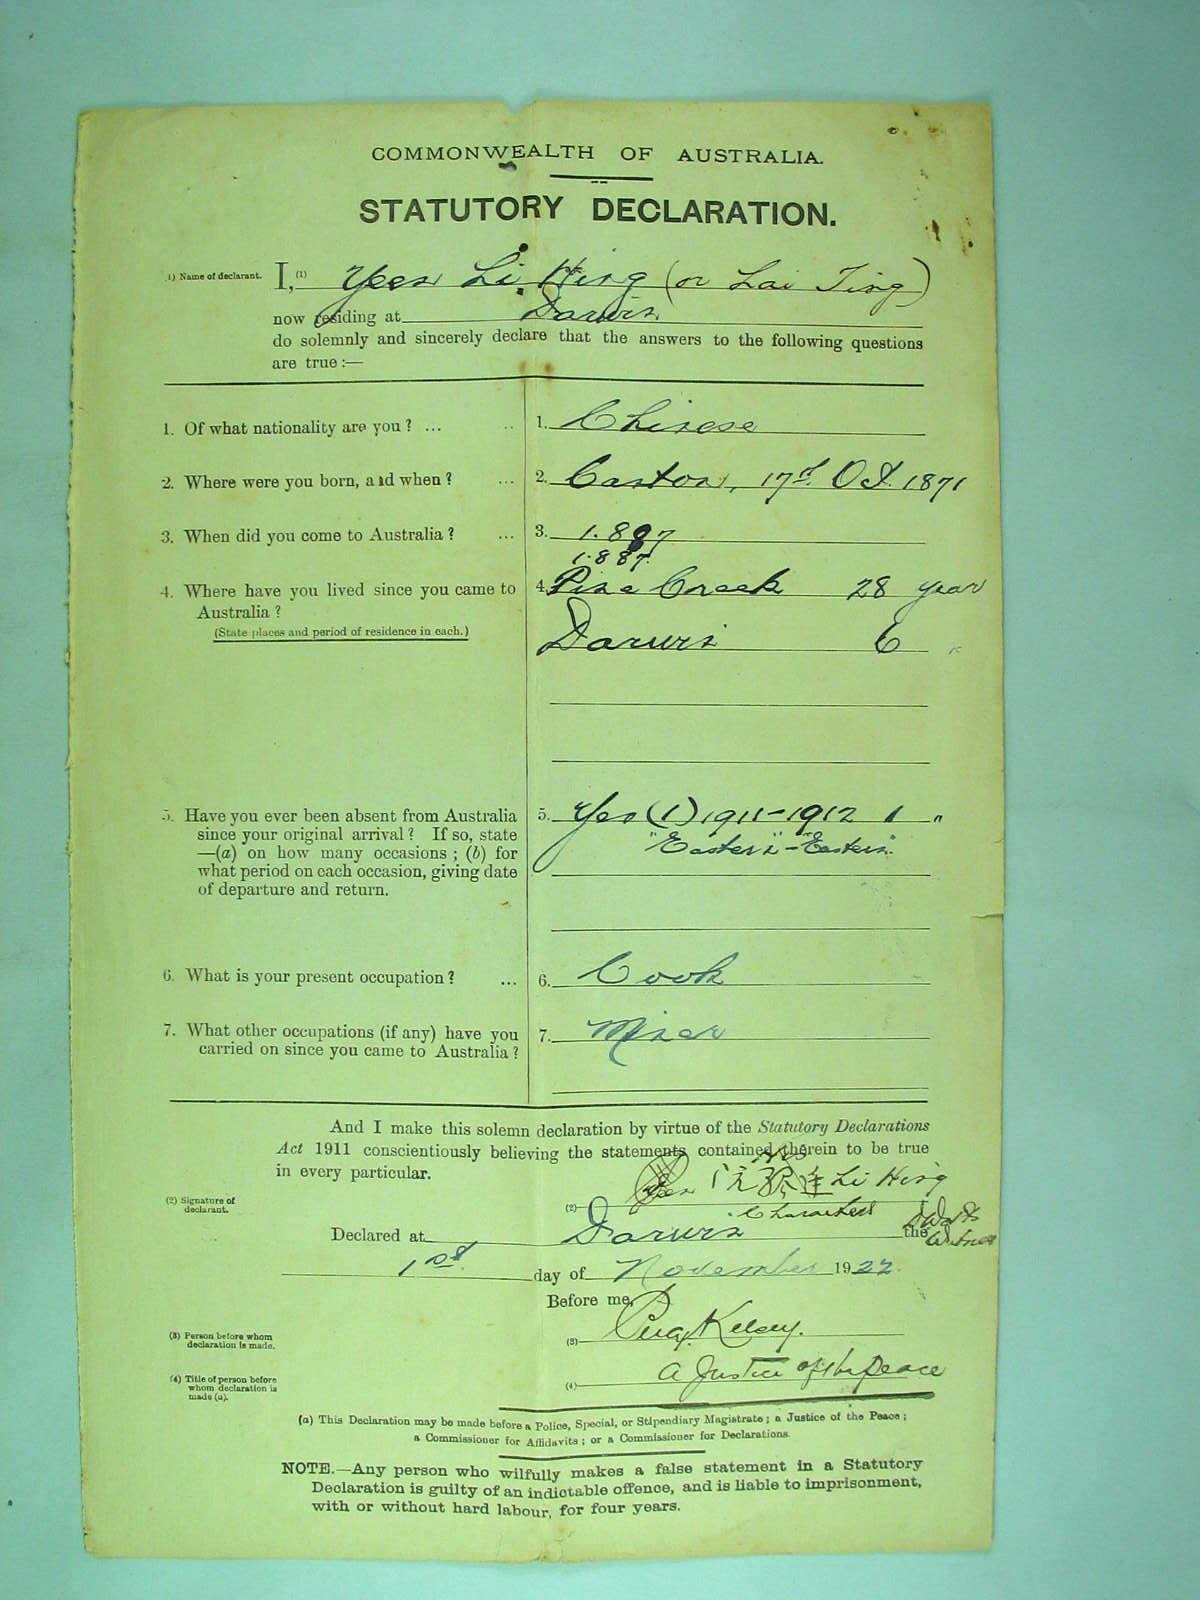 COMMONWEALTH OF AUSTRALIA.
STATUTORY DECLARATION.
1) Name of declarant. I, (1) Yeen Li Hing (or Lai Ting)
now residing at Darwin
do solemnly and sincerely declare that the answers to the following questions
are true :—
1. Of what nationality are you ? ... .. 1. Chinese
2. Where were you born, and when ? ... 2. Canton, 17th Oct. 1871
3. When did you come to Australia ? ... 3. 1.887
1.887.
4. Where have you lived since you came to 4. Pine Creek 28 year
Australia ?
(State places and period of residence in each.)
Darwin 6 "
5. Have you ever been absent from Australia 5. Yes (1) 1911-1912 1 "
since your original arrival ? If so, state "Eastern" - "Eastern".
—(a) on how many occasions ; (b) for
what period on each occasion, giving date
of departure and return.
6. What is your present occupation ? ... 6. Cook
7. What other occupations (if any) have you 7. Miner
carried on since you came to Australia ?
And I make this solemn declaration by virtue of the Statutory Declarations
Act 1911 conscientiously believing the statements contained therein to be true
in every particular.
(2) Signature of
declarant.
(2) Yeen Li Hing
Characters
Declared at Darwin the
Witness
1st. day of November 1922.
Before me,
(3) Person before whom
declaration is made.
(3) Kelsey.
(4) Title of person before
whom declaration is
made (a).
(4) A Justice of the Peace
(a) This Declaration may be made before a Police, Special, or Stipendiary Magistrate ; a Justice of the Peace ;
a Commissioner for Affidavits ; or a Commissioner for Declarations.
NOTE.—Any person who wilfully makes a false statement in a Statutory
Declaration is guilty of an indictable offence, and is liable to imprisonment,
with or without hard labour, for four years.